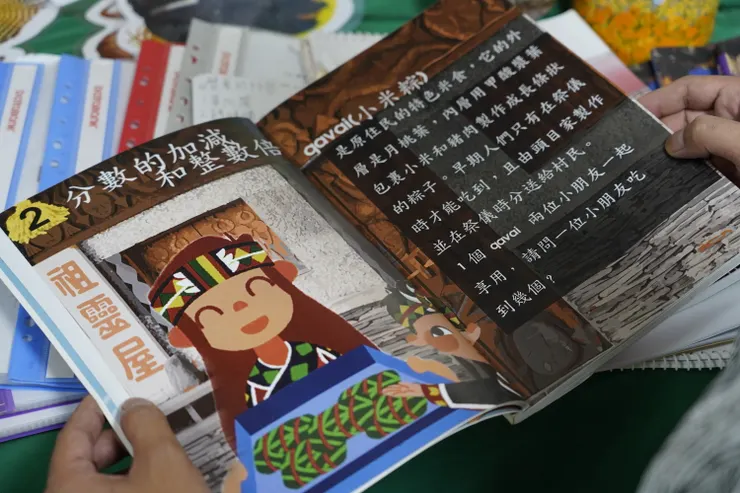 2
分數的加減
和整數倍
祖靈屋
qavai(小米粽)
是原住民的特色米食,它的外
層是月桃葉,內層用甲酸漿葉
包裹小米和豬肉製作成長條狀
的粽子。早期人們只有在祭儀
時才能吃到,且由頭目家製作
並在祭儀時分送給村民。
1 個 qavai 兩位小朋友一起
享用,請問一位小朋友吃
到幾個?